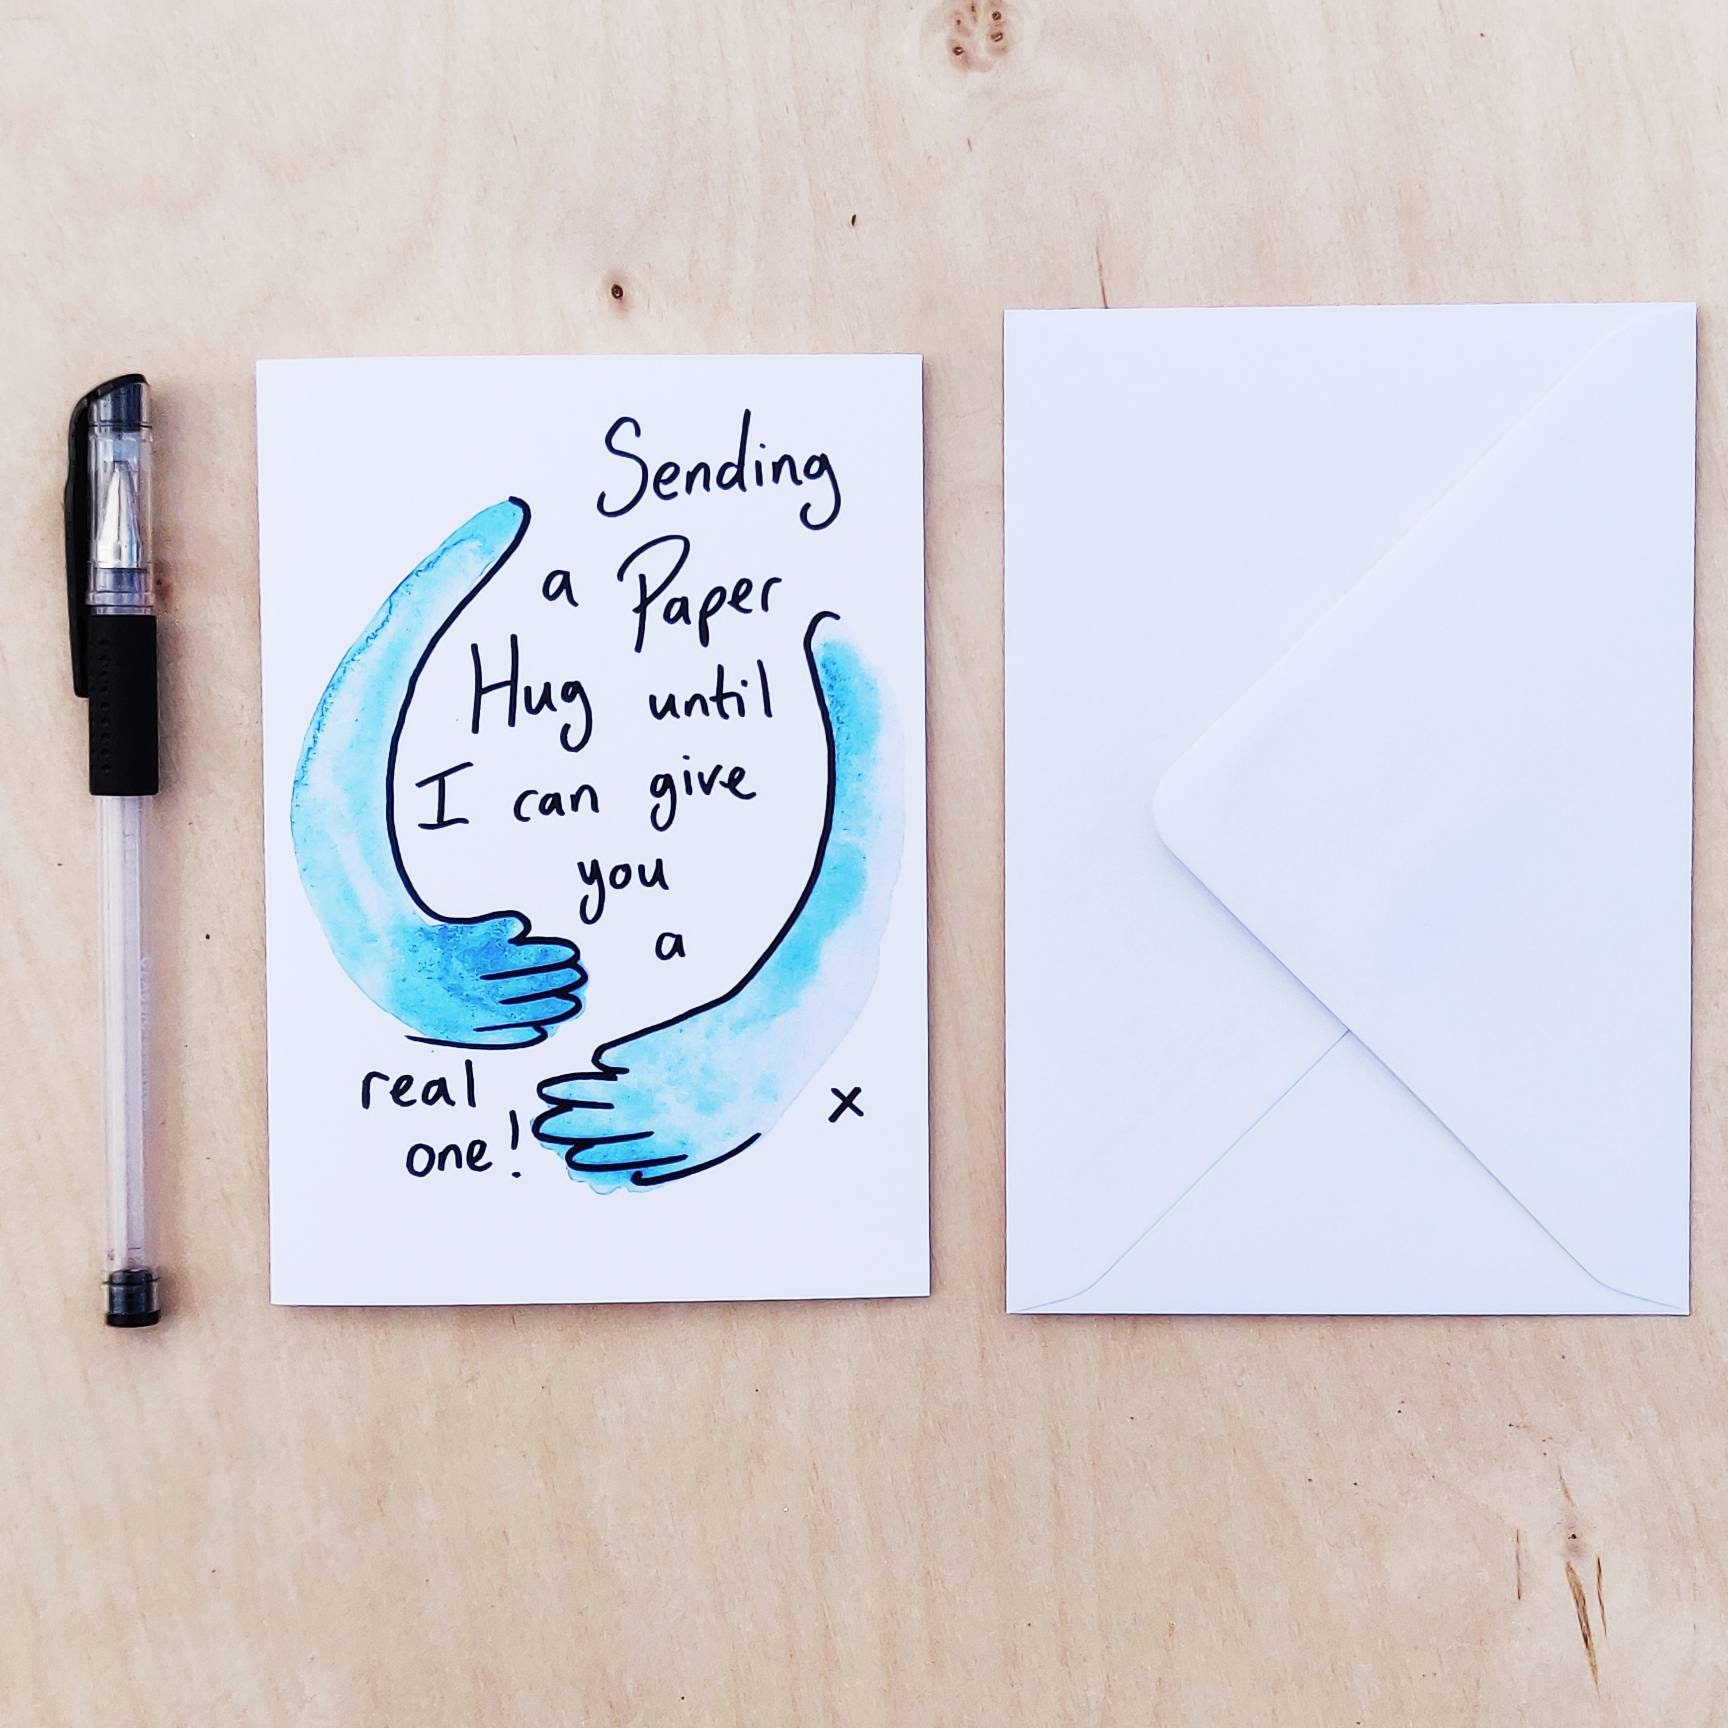 Sending
a Paper
Hug until
I can give
you
a
real
one!
x